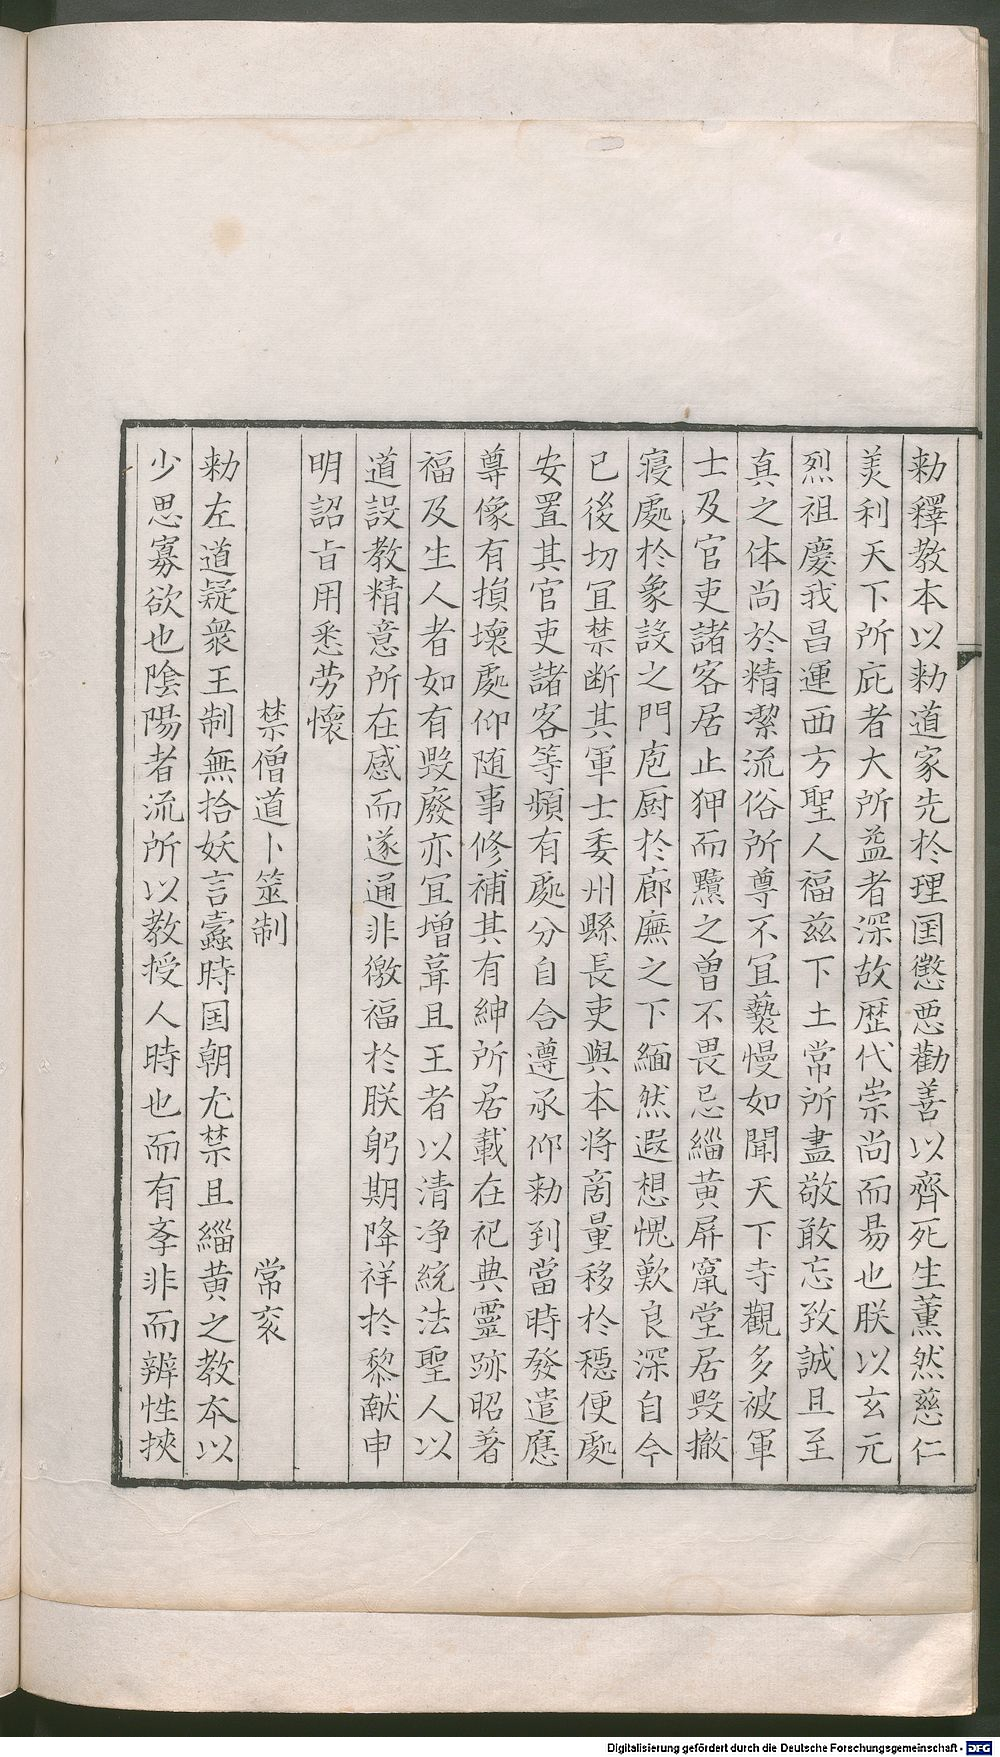 勑釋教本以勑道家先扵理国懲悪勸善以齊死生薰然慈仁
羙利天下所庇者大所益者深故歴代崇尚而易也朕以玄元
烈祖慶我昌運西方聖人福兹下土常所盡敬敢忘致誠且至
真之体尚於精潔流俗所尊不冝䙝慢如聞天下寺觀多被軍
士及官吏諸客居止狎而黷之曽不畏忌緇黄屏竄堂居毀撤
寝處扵象設之門庖厨扵廊廡之下緬然遐想愧歎良深自今
已後切冝禁断其軍士委州縣長吏與本将商量移扵穏便處
安置其官吏諸客等頻有處分自合遵承仰勑到當時發遣應
尊像有損壊處仰随事修補其有紳所居載在祀典靈跡昭著
福及生人者如有毀廢亦冝增葺且王者以清净統法聖人以
道設教精意所在感而遂通非徼福扵朕躬期降祥扵黎献申
明詔㫖用悉劳懷
禁僧道卜筮制 常衮
勑左道疑衆王制無捨妖言蠹時国朝尤禁且緇黄之教夲以
少思寡欲也隂陽者流所以教授人時也而有斈非而辨性挾